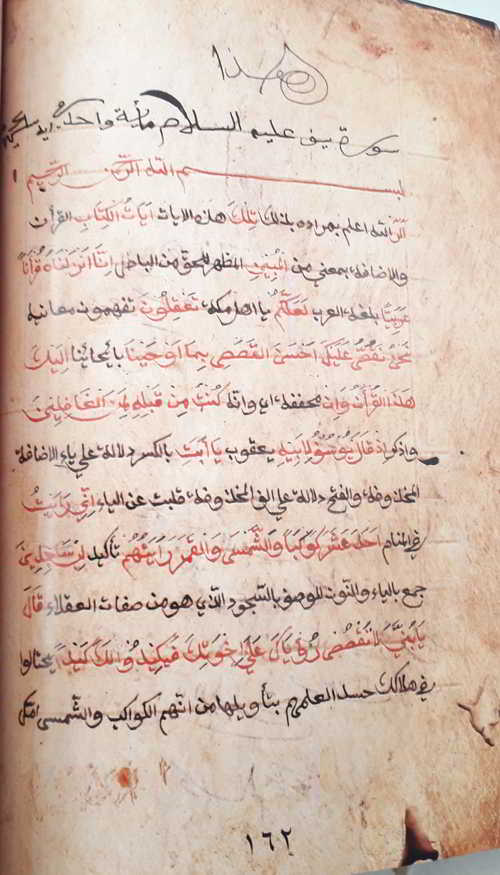 هذا
سورة يوسف عليه السلام مأية واحد
بسم الله الرحمن الرحيم
الر الله اعلم بمراده بذلك تلك هذه الايات ايات الكتاب القرأن
والاضافة بمعنى من المبين المظهر للحق من الباطل انا انزلناه قرأنا
عربيا بلغة العرب لعلكم يا اهل مكة تعقلون تفهمون معانيه
نحن نقص عليك احسن القصص بما اوحينا بايحائنا اليك
هذا القرأن وان مخففة اي وانه كنت من قبله لمن الغافلين
واذكر اذ قال يوسف لابيه يعقوب يا ابت بالكسر دلالة على ياء الاضافة
المحذوفة والفتح دلالة على الف المحذوفة قلبت عن الياء اني رايت
في المنام احد عشر كوكبا والشمس والقمر رايتهم تأكيد لي ساجدين
جمع بالياء والنون للوصف بالسجود الذي هو من صفات العقلاء قال
يا بني لا تقصص رؤياك على اخوتك فيكيدوا لك كيدا يحتالوا
في هلاكك حسدا لعلمهم بتأويلها من انهم الكواكب والشمس امك
١٦٢